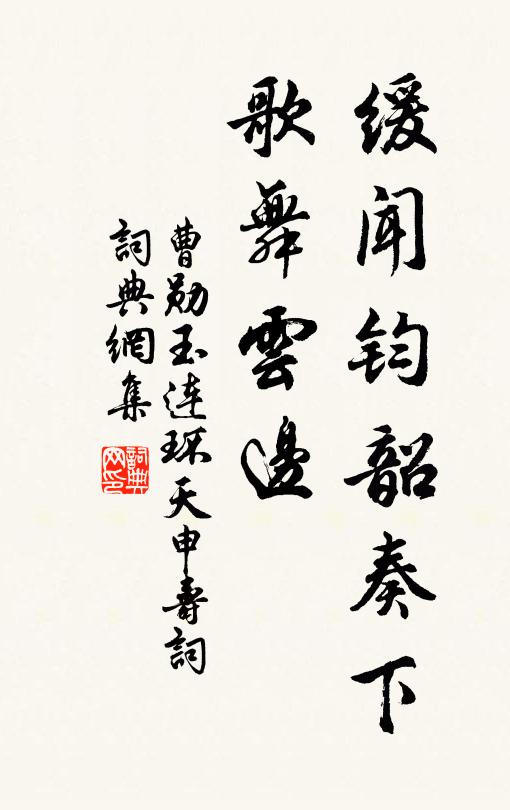 缓闻钧韶奏下
歌舞雲邊
曹勋玉连环天申壽詞
詞典網集
詞典网印